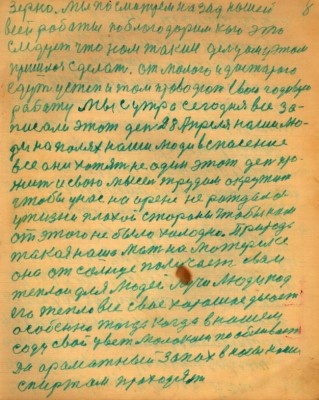 зерно. Мы посмотрем назад нашей 8
всей работы поблагодорим кого это
следует что нам таким делу
пришлося сделать. от малого и до старого
едут и там проводют свои годовую
работу Мы с утра сегодня все за-
писали этот ден 28 Апреля наши лю-
ди на полях наши люди в спасение
все они хотят не один этот ден про-
жит и свою мысел трудам окружит
чтобы у нас на арене не рождалося
у жизни плохой стороны чтобы нам
от этого не было холодно. Природа
такая наша мат на материке
она от солнце получает вам
теплои для людей лучи люди под
его тепло все свое хорошое делают
особенно тогда когда в нашем
саду свой цвет молоком пооблевают
за араматный запах в
спиртам проходят